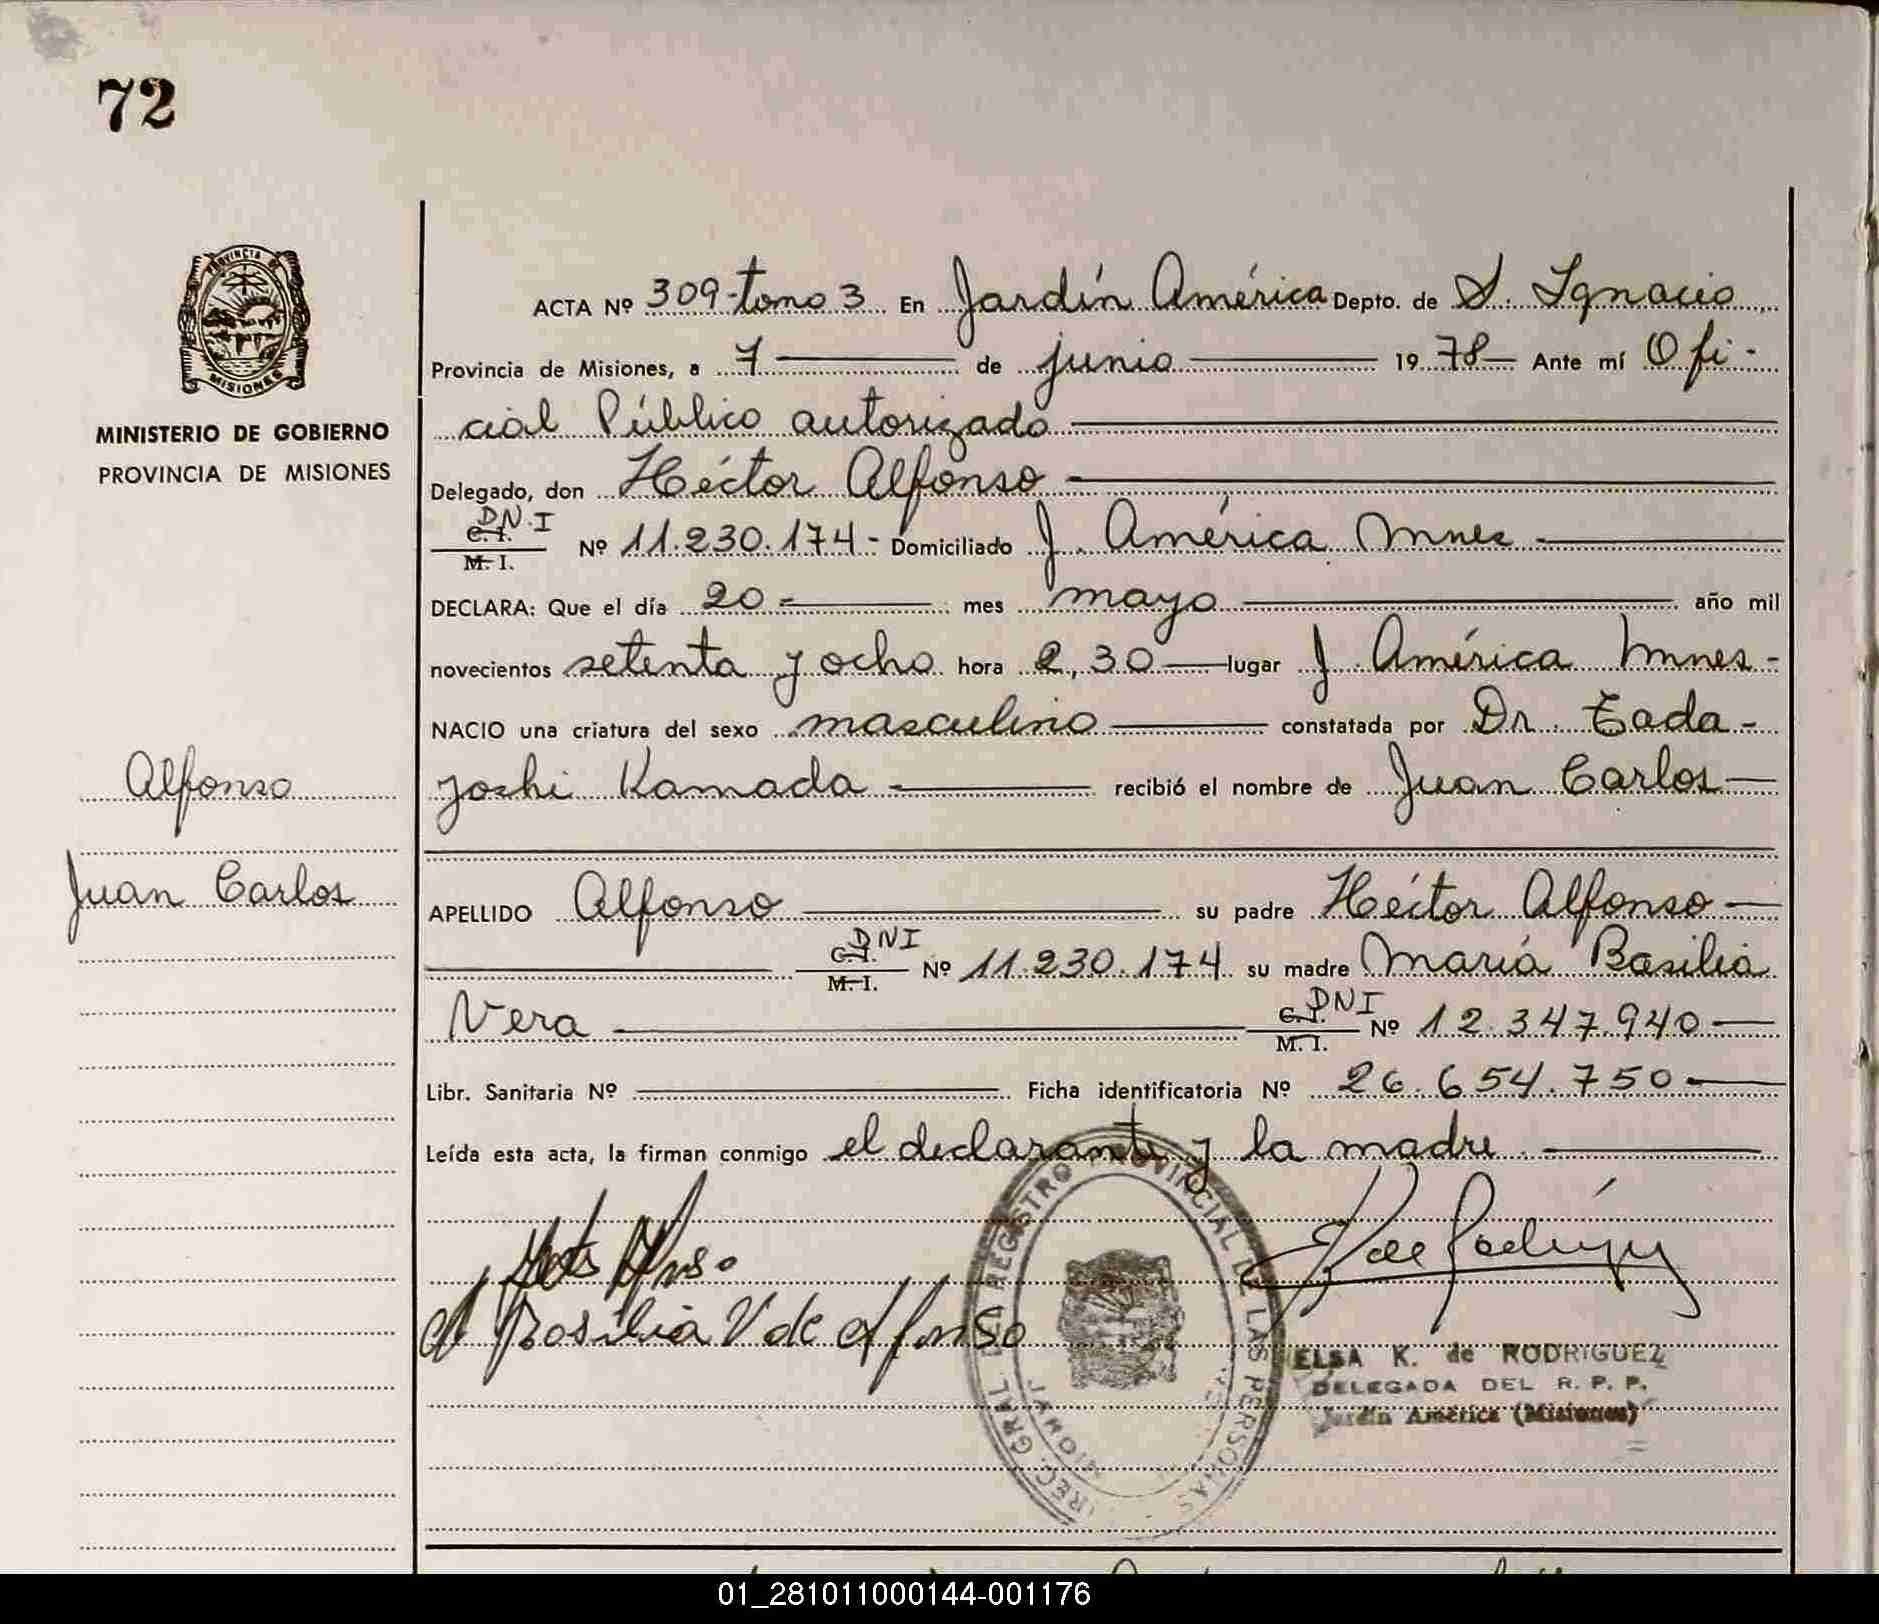 72
PROVINCIA DE
MISIONES
MINISTERIO DE GOBIERNO
PROVINCIA DE MISIONES
Alfonso
Juan Carlos
ACTA Nº 309-tomo 3 En Jardín América Depto. de S. Ignacio
Provincia de Misiones, a 7 de junio 1978 Ante mí Ofi-
cial Público autorizado
Delegado, don Héctor Alfonso
D.N.I
C.I.
M. I. Nº 11.230.174- Domiciliado J. América Mnes
DECLARA: Que el día 20- mes mayo año mil
novecientos setenta y ocho hora 2,30 lugar J. América Mnes-
NACIO una criatura del sexo masculino constatada por Dr. Tada-
yoshi Kamada recibió el nombre de Juan Carlos
APELLIDO Alfonso su padre Héctor Alfonso
DNI
C.I.
M. I. Nº 11.230.174 su madre María Basilia
Vera DNI
C.I.
M. I. Nº 12.347.940
Libr. Sanitaria Nº Ficha identificatoria Nº 26.654.750
Leída esta acta, la firman conmigo el declarante y la madre.
Basilia V de Alfonso
REGISTRO PROVINCIAL DE LAS PERSONAS
ELSA K. de RODRIGUEZ
DELEGADA DEL R. P. P.
Jardín América (Misiones)
01_281011000144-001176